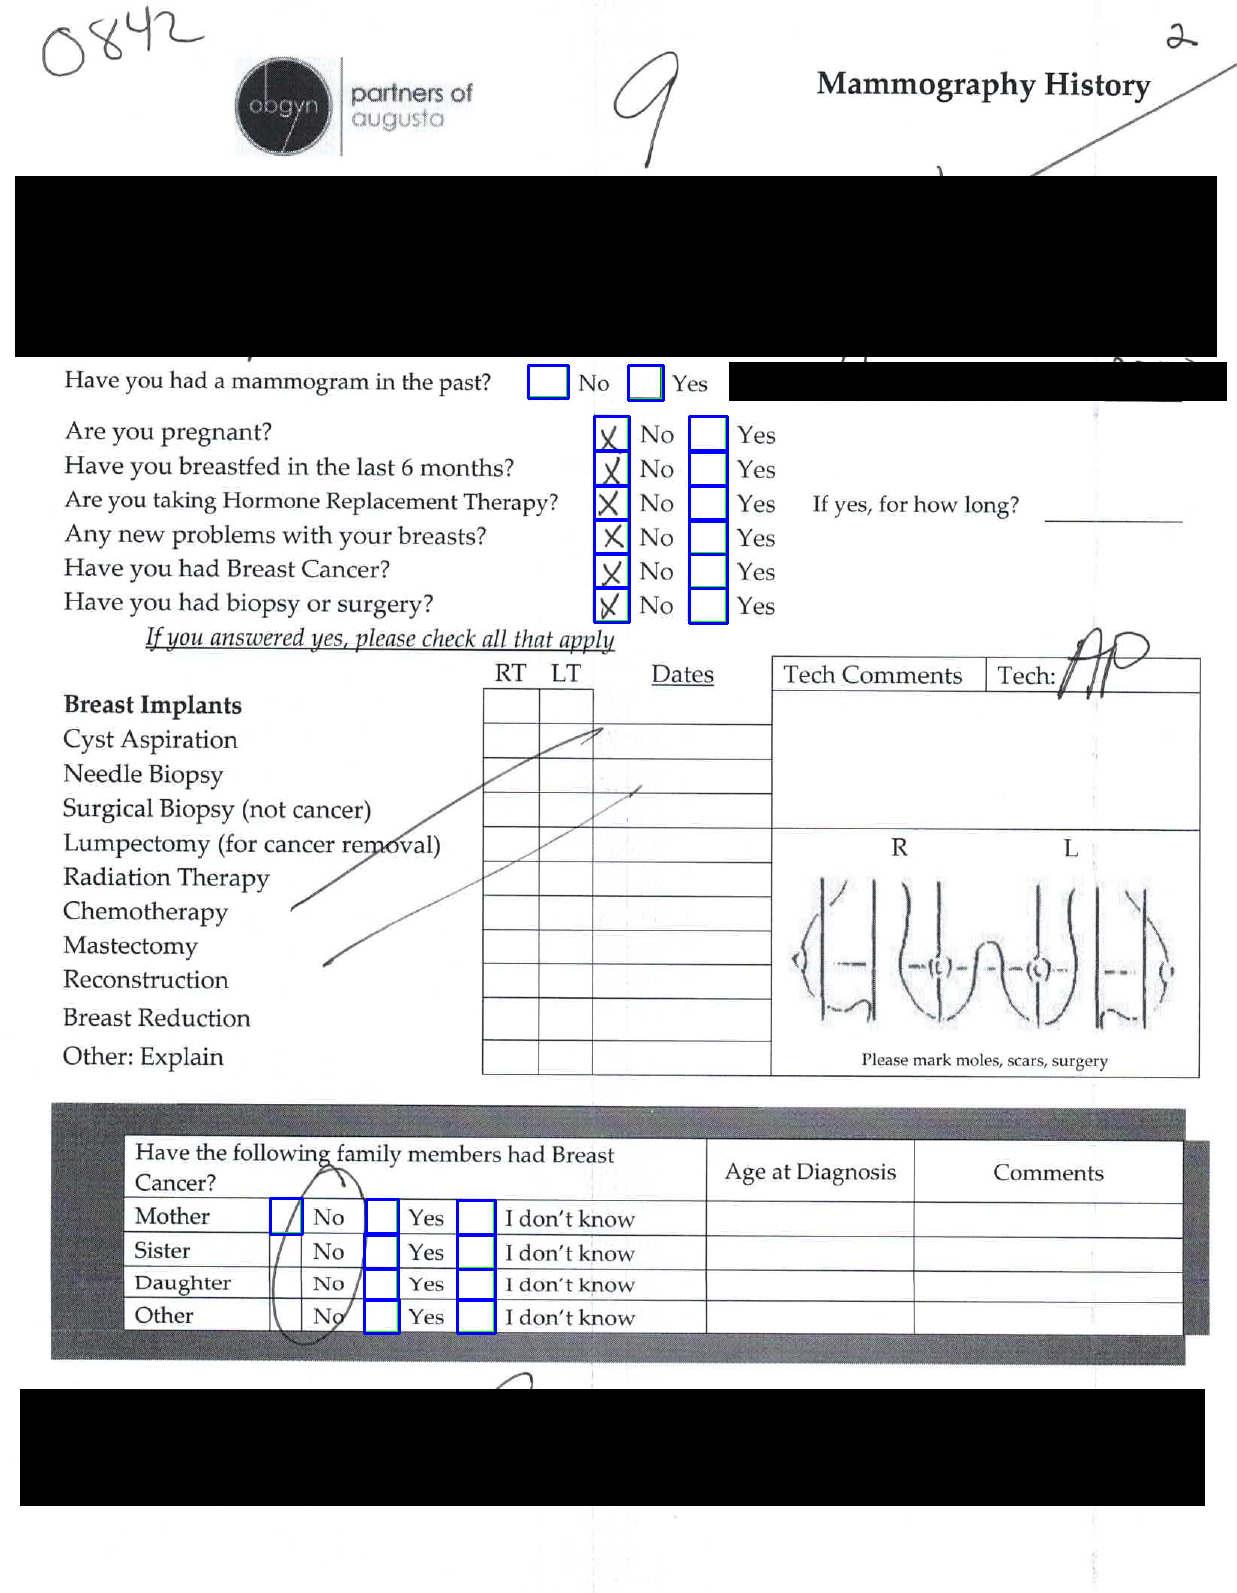 0842
2
9
obgyn partners of augusta
Mammography History
Have you had a mammogram in the past? No Yes
Are you pregnant? X No Yes
Have you breastfed in the last 6 months? X No Yes
Are you taking Hormone Replacement Therapy? X No Yes If yes, for how long?
Any new problems with your breasts? X No Yes
Have you had Breast Cancer? X No Yes
Have you had biopsy or surgery? X No Yes
If you answered yes, please check all that apply
RT LT Dates Tech Comments Tech: AP
Breast Implants
Cyst Aspiration
Needle Biopsy
Surgical Biopsy (not cancer)
Lumpectomy (for cancer removal)
R L
Radiation Therapy
Chemotherapy
Mastectomy
Reconstruction
Breast Reduction
Other: Explain
Please mark moles, scars, surgery
Have the following family members had Breast
Cancer?
Age at Diagnosis Comments
Mother No Yes I don't know
Sister No Yes I don't know
Daughter No Yes I don't know
Other No Yes I don't know